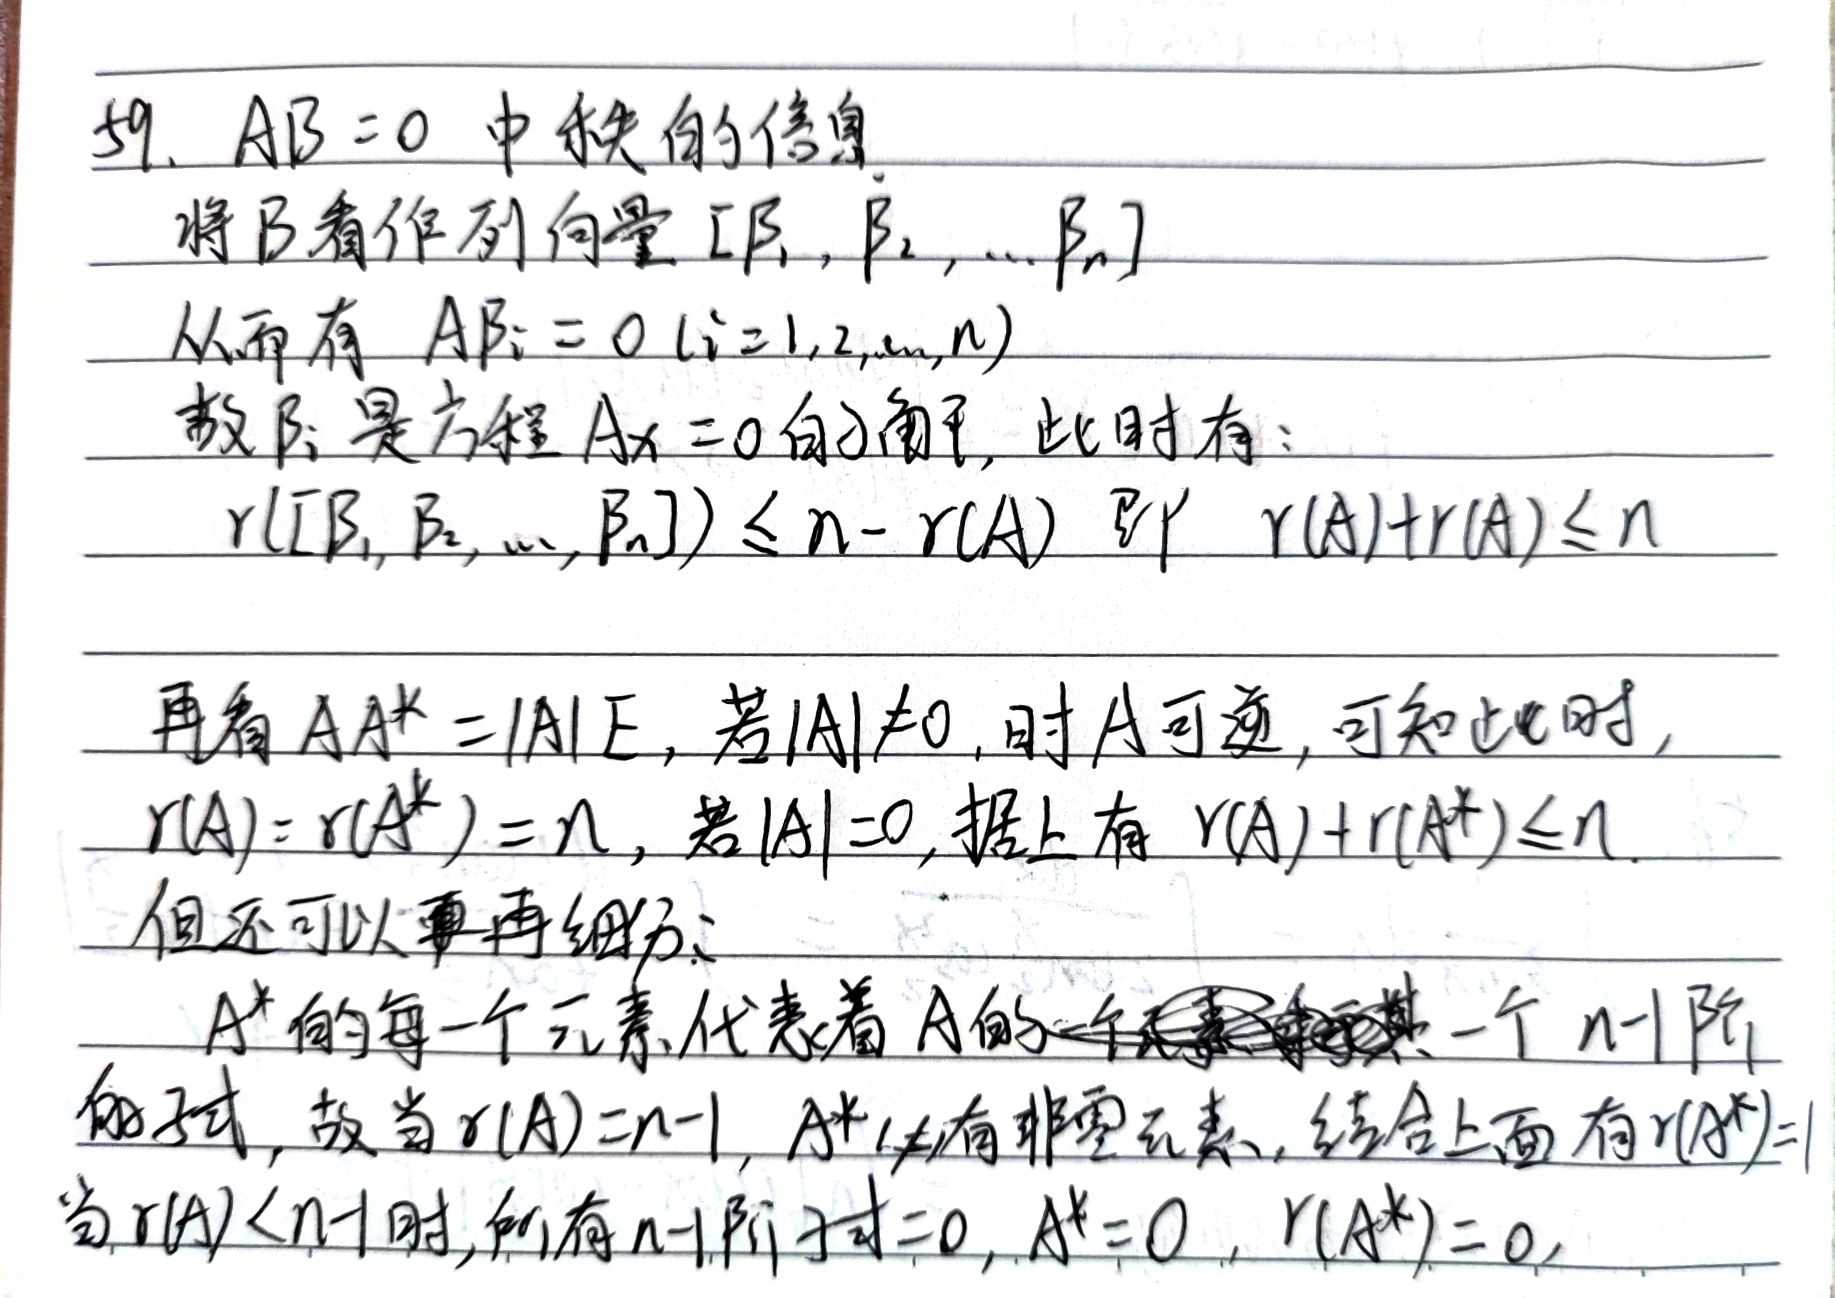 59. AB=0 中秩的信息
将B看作列向量 [β₁, β₂, … βₙ]
从而有 Aβᵢ = 0 (i=1,2,…,n)
故βᵢ是方程 Ax=0的解, 此时有:
r([β₁, β₂, …, βₙ]) ≤ n - r(A) 即 r(A)+r(A) ≤ n
再看 AA* = |A|E, 若|A|≠0, 时A可逆, 可知此时,
r(A) = r(A*) = n, 若|A|=0, 据上有 r(A)+r(A*)≤n.
但还可以再细分:
A*的每一个元素代表着A的一个 n-1阶
的子式, 故当r(A)=n-1, A*必有非零元素, 结合上面有r(A*)=1
当r(A)<n-1时, 所有n-1阶子式=0, A*=0, r(A*)=0,